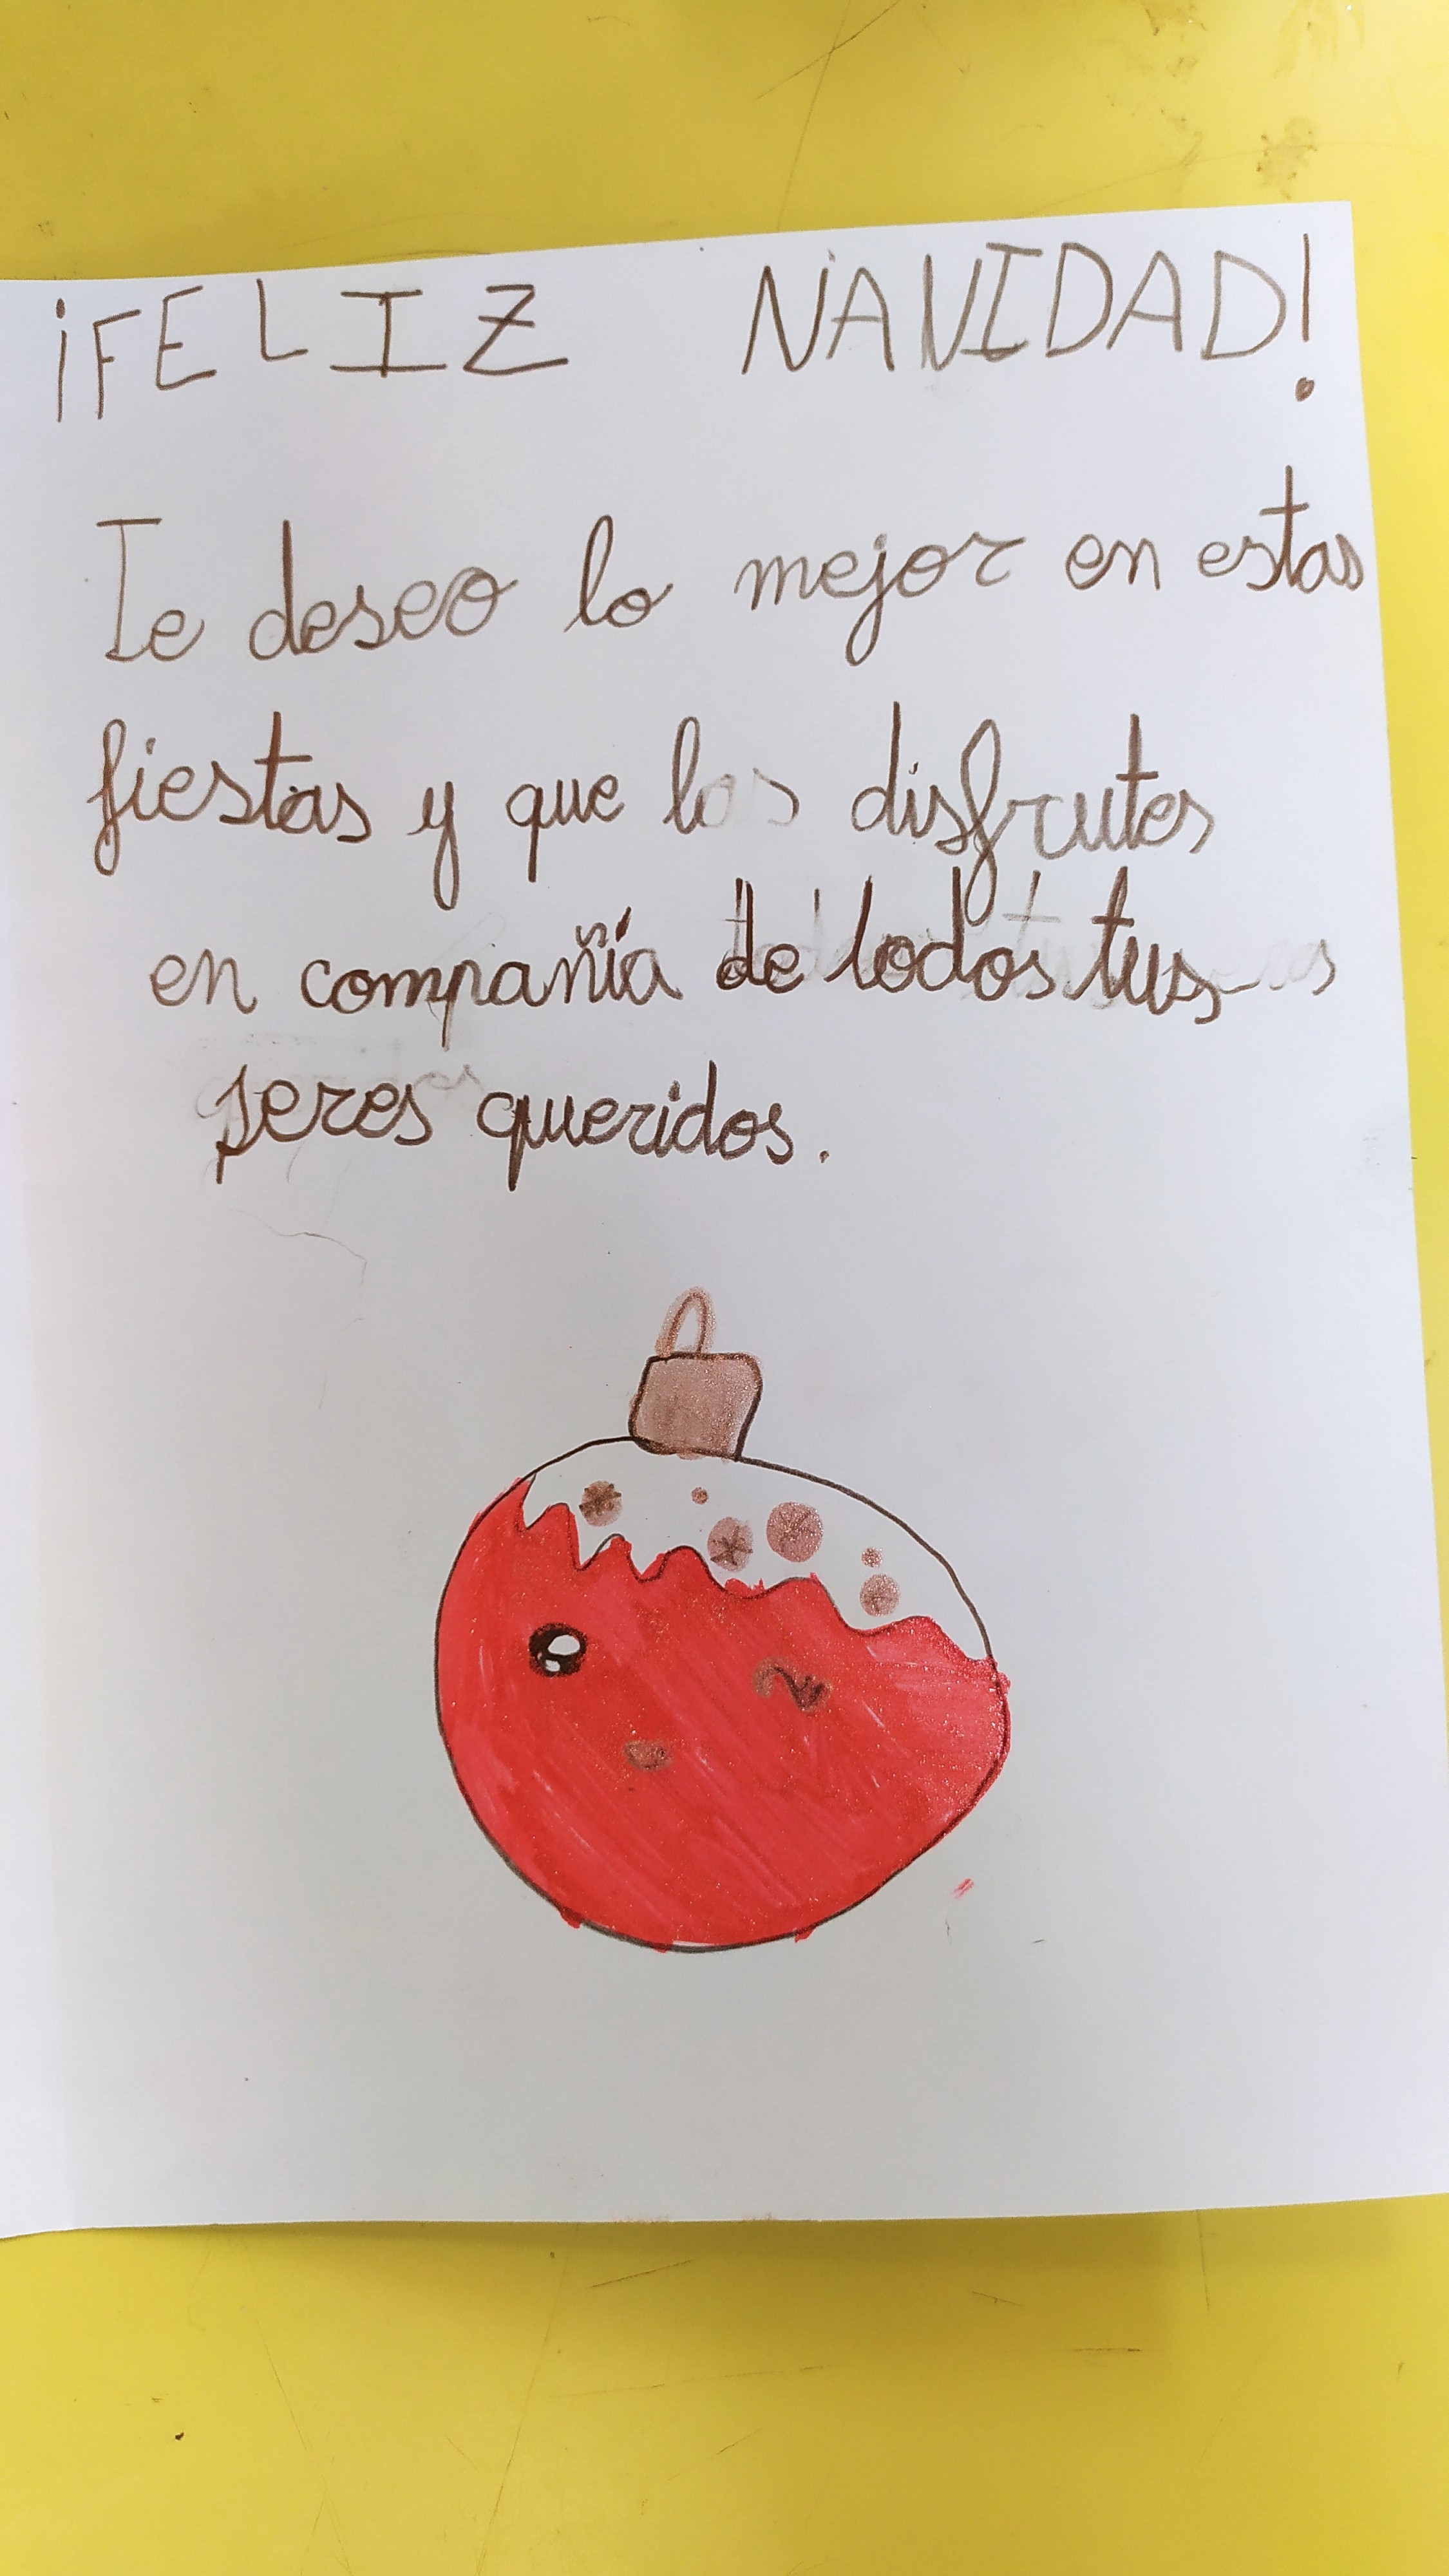 ¡FELIZ NAVIDAD!
Te deseo lo mejor en estas
fiestas y que los disfrutes
en compañía de todos tus
seres queridos.